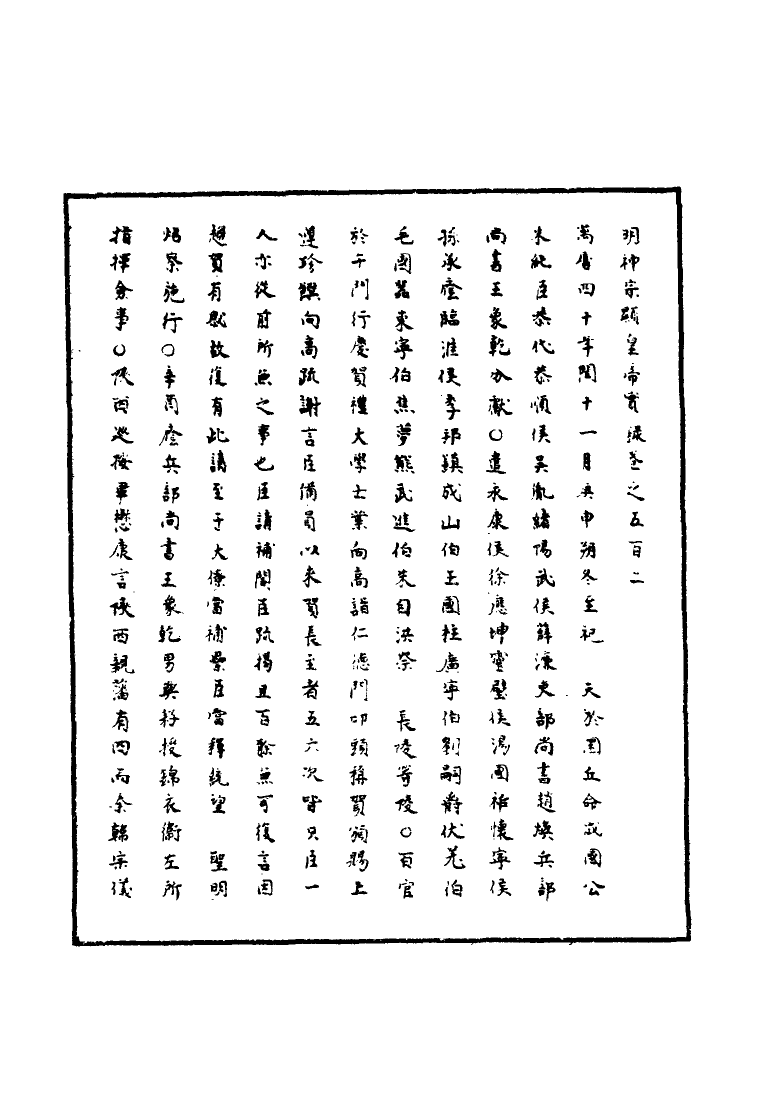 明神宗顯皇帝實録卷之五百二
萬曆四十年閏十一月庚申朔冬至祀　天於圜丘命成國公
朱純臣恭代恭順侯吳胤嬉陽武侯薛濂吏部尚書趙煥兵部
尚書王象乾分獻○遣永康侯徐應坤靈璧侯湯國祚懷寧侯
孫承廕臨淮侯李邦鎮成山伯王國柱廣寧伯劉嗣爵伏羌伯
毛國器東寧伯焦夢熊武進伯朱自洪祭　長陵等陵○百官
於午門行慶賀禮大學士葉向高詣仁德門叩頭稱賀頒賜上
遵珍饌向高疏謝言臣備員以來賀長至者五六次皆只臣一
人亦從前所無之事也臣請補閣臣疏揭且百餘無可復言因
趨賀有感故復有此請至于大僚當補纍臣當釋統望　聖明
炤察施行○辛酉廕兵部尚書王象乾男與籽授錦衣衞左所
指揮僉事○陝西巡按畢懋康言陝西親藩有四而秦韓宗儀